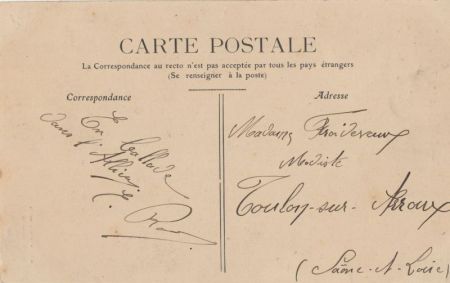 CARTE POSTALE
La Correspondance au recto n'est pas acceptée par tous les pays étrangers
(Se renseigner à la poste)
Correspondance
Adresse
En ballade
dans l'Allier
Madame Froidevaux
Modiste
Toulon-sur-Arroux
(Saône-et-Loire)